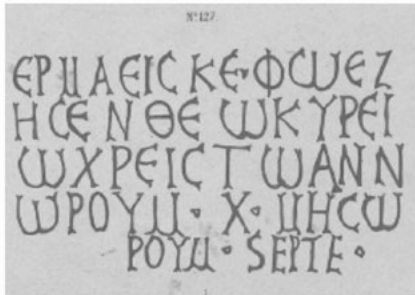 Nº 127
ΕΡΜΑΕΙϹ ΚΕ·ΦϹѠΕΖ
ΗϹΕ Ν ΘΕ ѠΚΥΡΕΙ
ѠΧΡΕΙϹΤ ѠΑΝΝ
ѠΡΟΥΜ · Χ · ΜΗϹѠ
ΡΟΥΜ · SEPTE ·